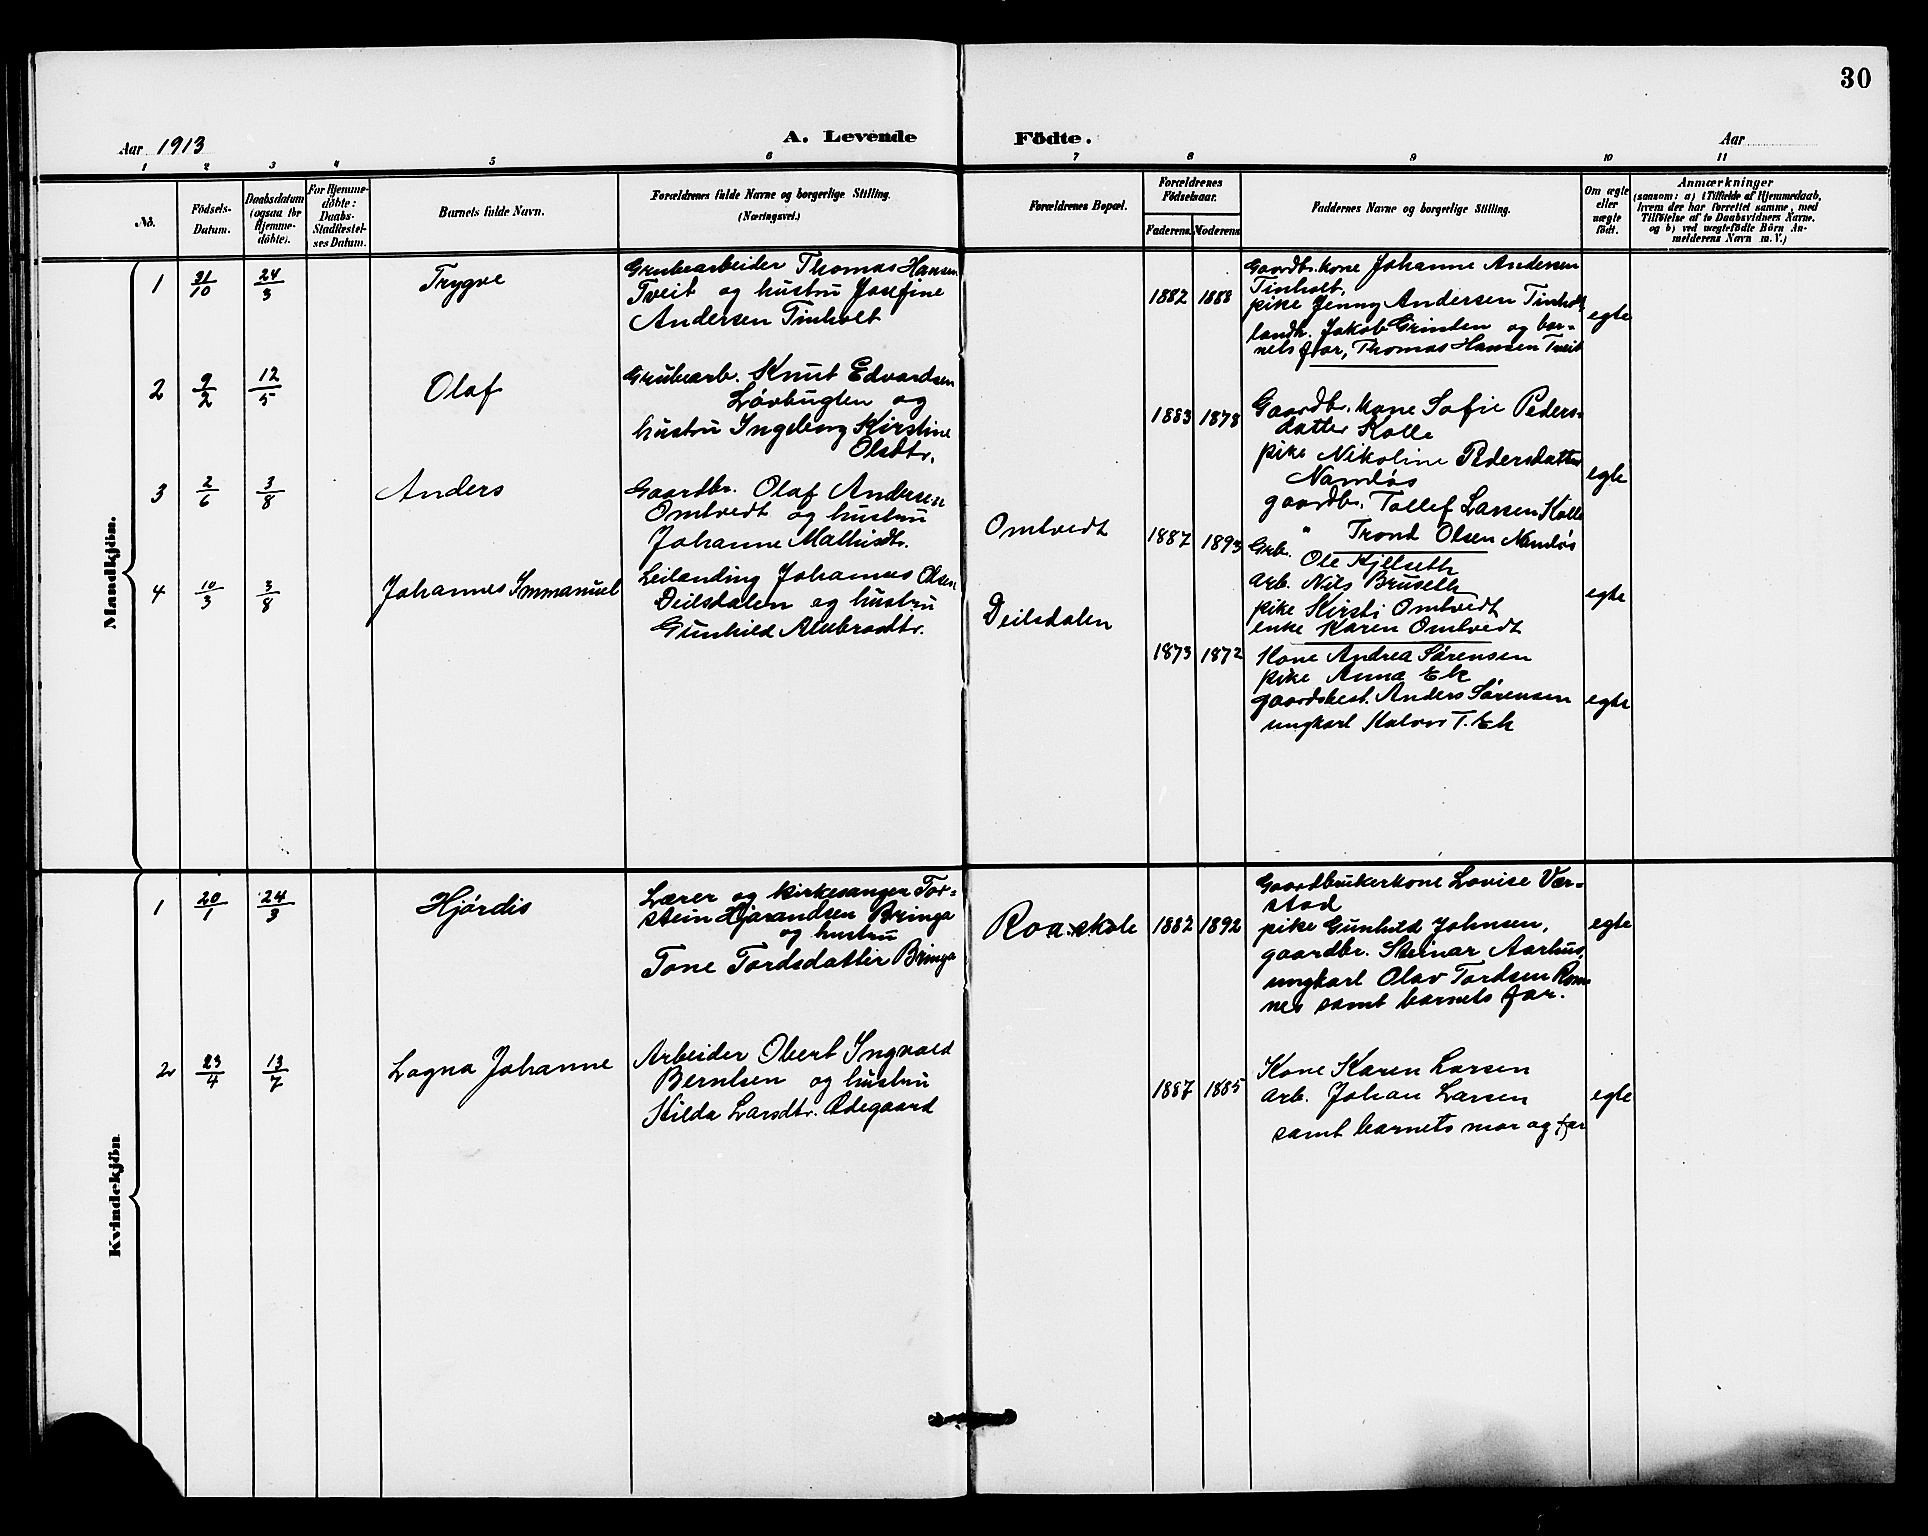 30
Aar 1913
A. Levende Födte.
Aar
1 2 3 4 5 6 7 8 9 10 11
No.
Födsels-Datum.
Daabsdatum (ogsaa for Hjemme-döbte).
For Hjemme-döbte: Daabs-Stadfæstel-ses Datum.
Barnets fulde Navn.
Forældrenes fulde Navne og borgerlige Stilling.
(Næringsvei.)
Forældrenes Bopæl.
Forældrenes Födselsaar.
Faderens. Moderens.
Faddernes Navne og borgerlige Stilling.
Om ægte eller uægte födt.
Anmærkninger
(saasom: a) i Tilfælde af Hjemmedaab,
hvem der har forrettet samme, med
Tilföielse af to Daabsvidners Navne,
og b) ved uægtefödte Börn An-
melderens Navn m. V.)
Mandkjön.
1 31/10 24/3 Trygve
Grubearbeider Thomas Hansen
Tveit og hustru Josefine
Andersen Tinholt
1882 1888
Gaardbr.kone Johanne Andersen
Tinholt,
pike Jenny Andersen Tinholt
landh. Jakob Grinden og bar-
nets far, Thomas Hansen Tveit
egte
2 9/2 12/5 Olaf
Grubearb. Knut Edvardsen
Løvbugten og
hustru Ingeborg Kirstine
Olsdtr.
1883 1878
Gaardbr. kone Sofie Peders-
datter Kolle
pike Nikoline Pedersdatter
Namløs
gaardbr. Tollef Larsen Kolle
" Trond Olsen Namløs
egte
3 2/6 3/8 Anders
Gaardbr. Olaf Andersen
Omtvedt og hustru
Johanne Mathisdtr.
Omtvedt
1887 1893
Grb. Ole Kjelseth
arb. Nils Bruseth
pike Kirsti Omtvedt
enke Karen Omtvedt
egte
4 10/3 3/8 Johannes Immanuel
Leilending Johannes Olsen
Deilsdalen og hustru
Gunhild
Deilsdalen
1873 1872
Kone Andrea Sørensen
pike Anna Ek
gaardsbest. Anders Sørensen
ungkarl Halvor T. Ek
egte
Kvindekjön
1 20/1 24/3 Hjørdis
Lærer og kirkesanger Tor-
stein Hjarandsen Bringa
og hustru
Tone Tordsdatter Bringa
Roa skole
1882 1892
Gaardbrukerkone Lovise Vær-
stad
pike Gunhild Johnsen,
gaardbr. Steinar Aarhus,
ungkarl Olav Tordsen Rom-
nes samt barnets far.
egte
2 23/4 13/7 Lagna Johanne
Arbeider Obert Ingvald
Berntsen og hustru
Hilda Larsdtr. Ødegaard
1887 1885
Kone Karen Larsen
arb. Johan Larsen
samt barnets mor og far
egte